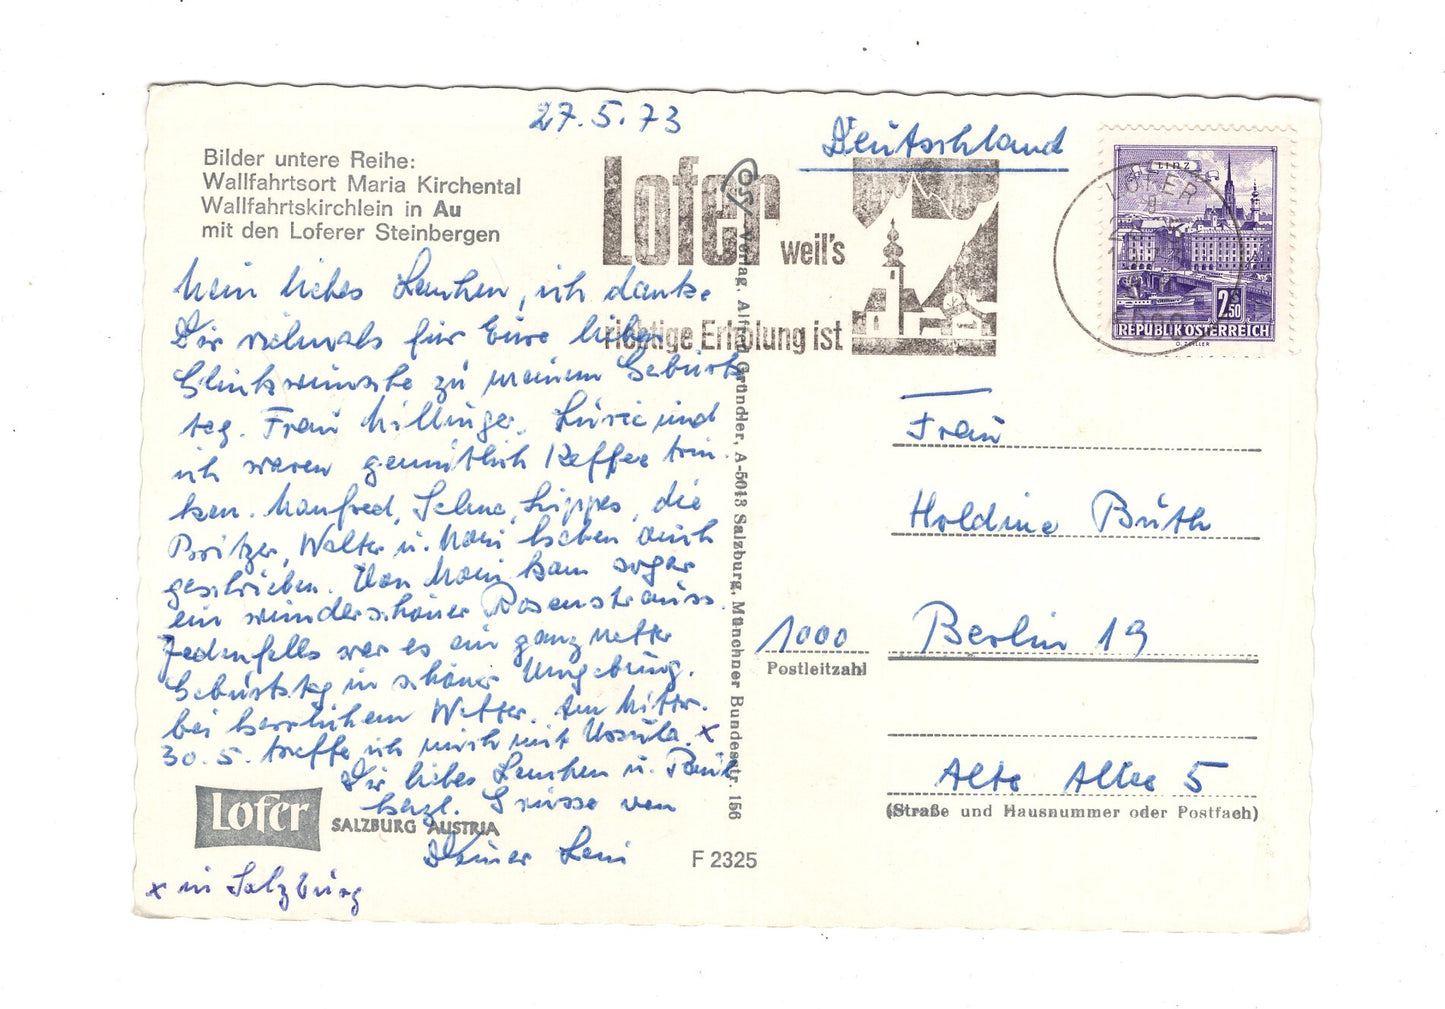 27.5.73
Deutschland
Bilder untere Reihe:
Wallfahrtsort Maria Kirchental
Wallfahrtskirchlein in Au
mit den Loferer Steinbergen
Lofer
weil's
richtige Erholung ist
LINZ
LOFER
2.50
S
REPUBLIK ÖSTERREICH
Mein liebes Lenchen, ich danke
Dir vielmals für Eure lieben
Glückwünsche zu meinem Geburts
tag. Frau Millinger, und
ich waren gemütlich Kaffee trin-
ken. Manfred, die
Walter u. haben auch
geschrieben. Von kam sogar
ein wunderschöner Rosenstrauss.
Jedenfalls war es ein ganz netter
Geburtstag in schöner Umgebung,
bei herrlichem Wetter. Am Mittw.
30.5. treffe ich mich mit Ursula. x
Dir liebes Lenchen u. Paul
herzl. Grüsse von
Deiner Leni
x in Salzburg
Lofer
SALZBURG AUSTRIA
F 2325
Verlag, Alfred Gründler, A-5013 Salzburg, Münchner Bundesstr. 156
Frau
Holdine Büth
1000 Berlin 19
Postleitzahl
Alte Allee 5
(Straße und Hausnummer oder Postfach)